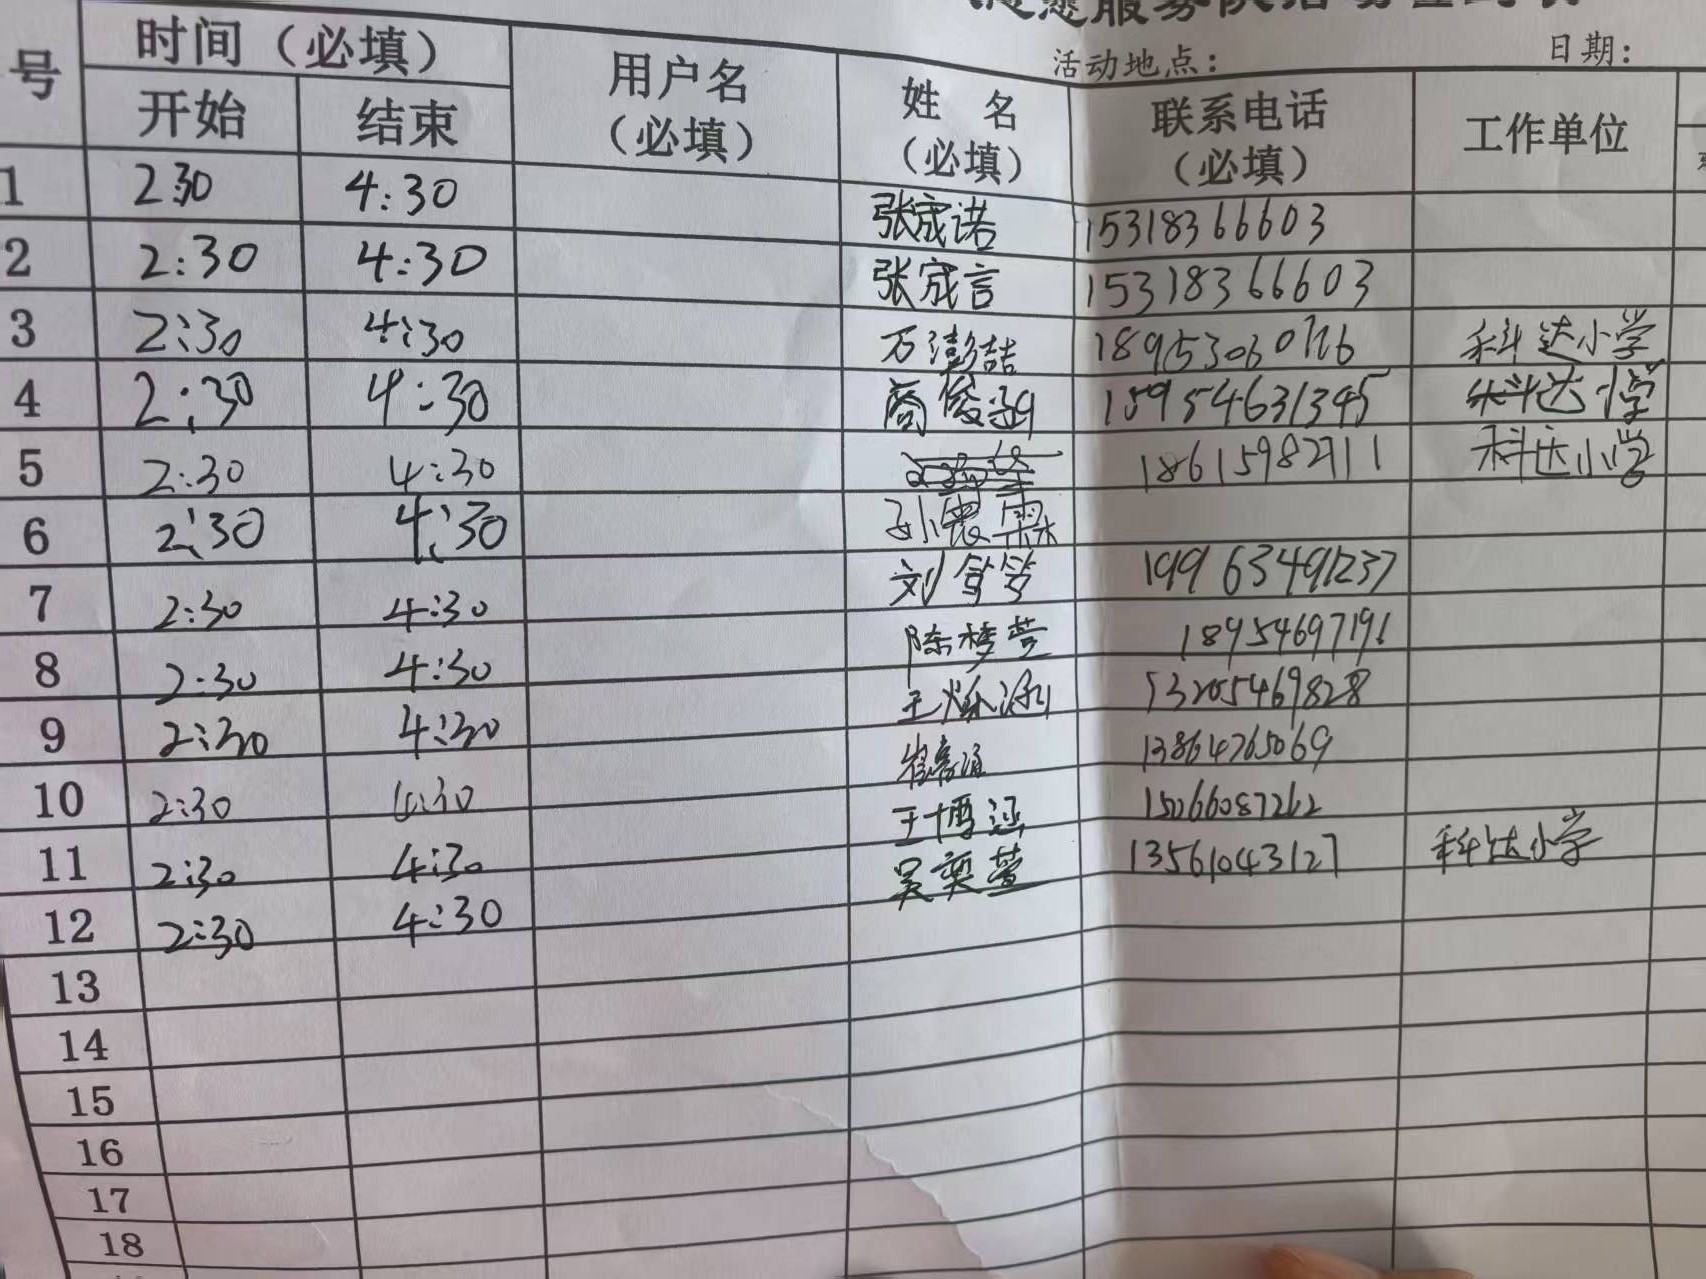 志愿服务队活动签到表
活动地点： 日期：
号 时间（必填） 用户名（必填） 姓 名（必填） 联系电话（必填） 工作单位
开始 结束
1 2:30 4:30 张宬诺 15318366603
2 2:30 4:30 张宬言 15318366603
3 2:30 4:30 万澎喆 科达小学
4 2:30 4:30 商俊 15954631345 科达小学
5 2:30 4:30 18615982711 科达小学
6 2:30 4:30 孙
7 2:30 4:30 刘 19963491237
8 2:30 4:30 陈梦 18954697191
9 2:30 4:30 王 13205469828
10 2:30 4:30 崔 13864765069
11 2:30 4:30 王博涵 15066087262
12 2:30 4:30 吴奕萱 13561043127 科达小学
13
14
15
16
17
18